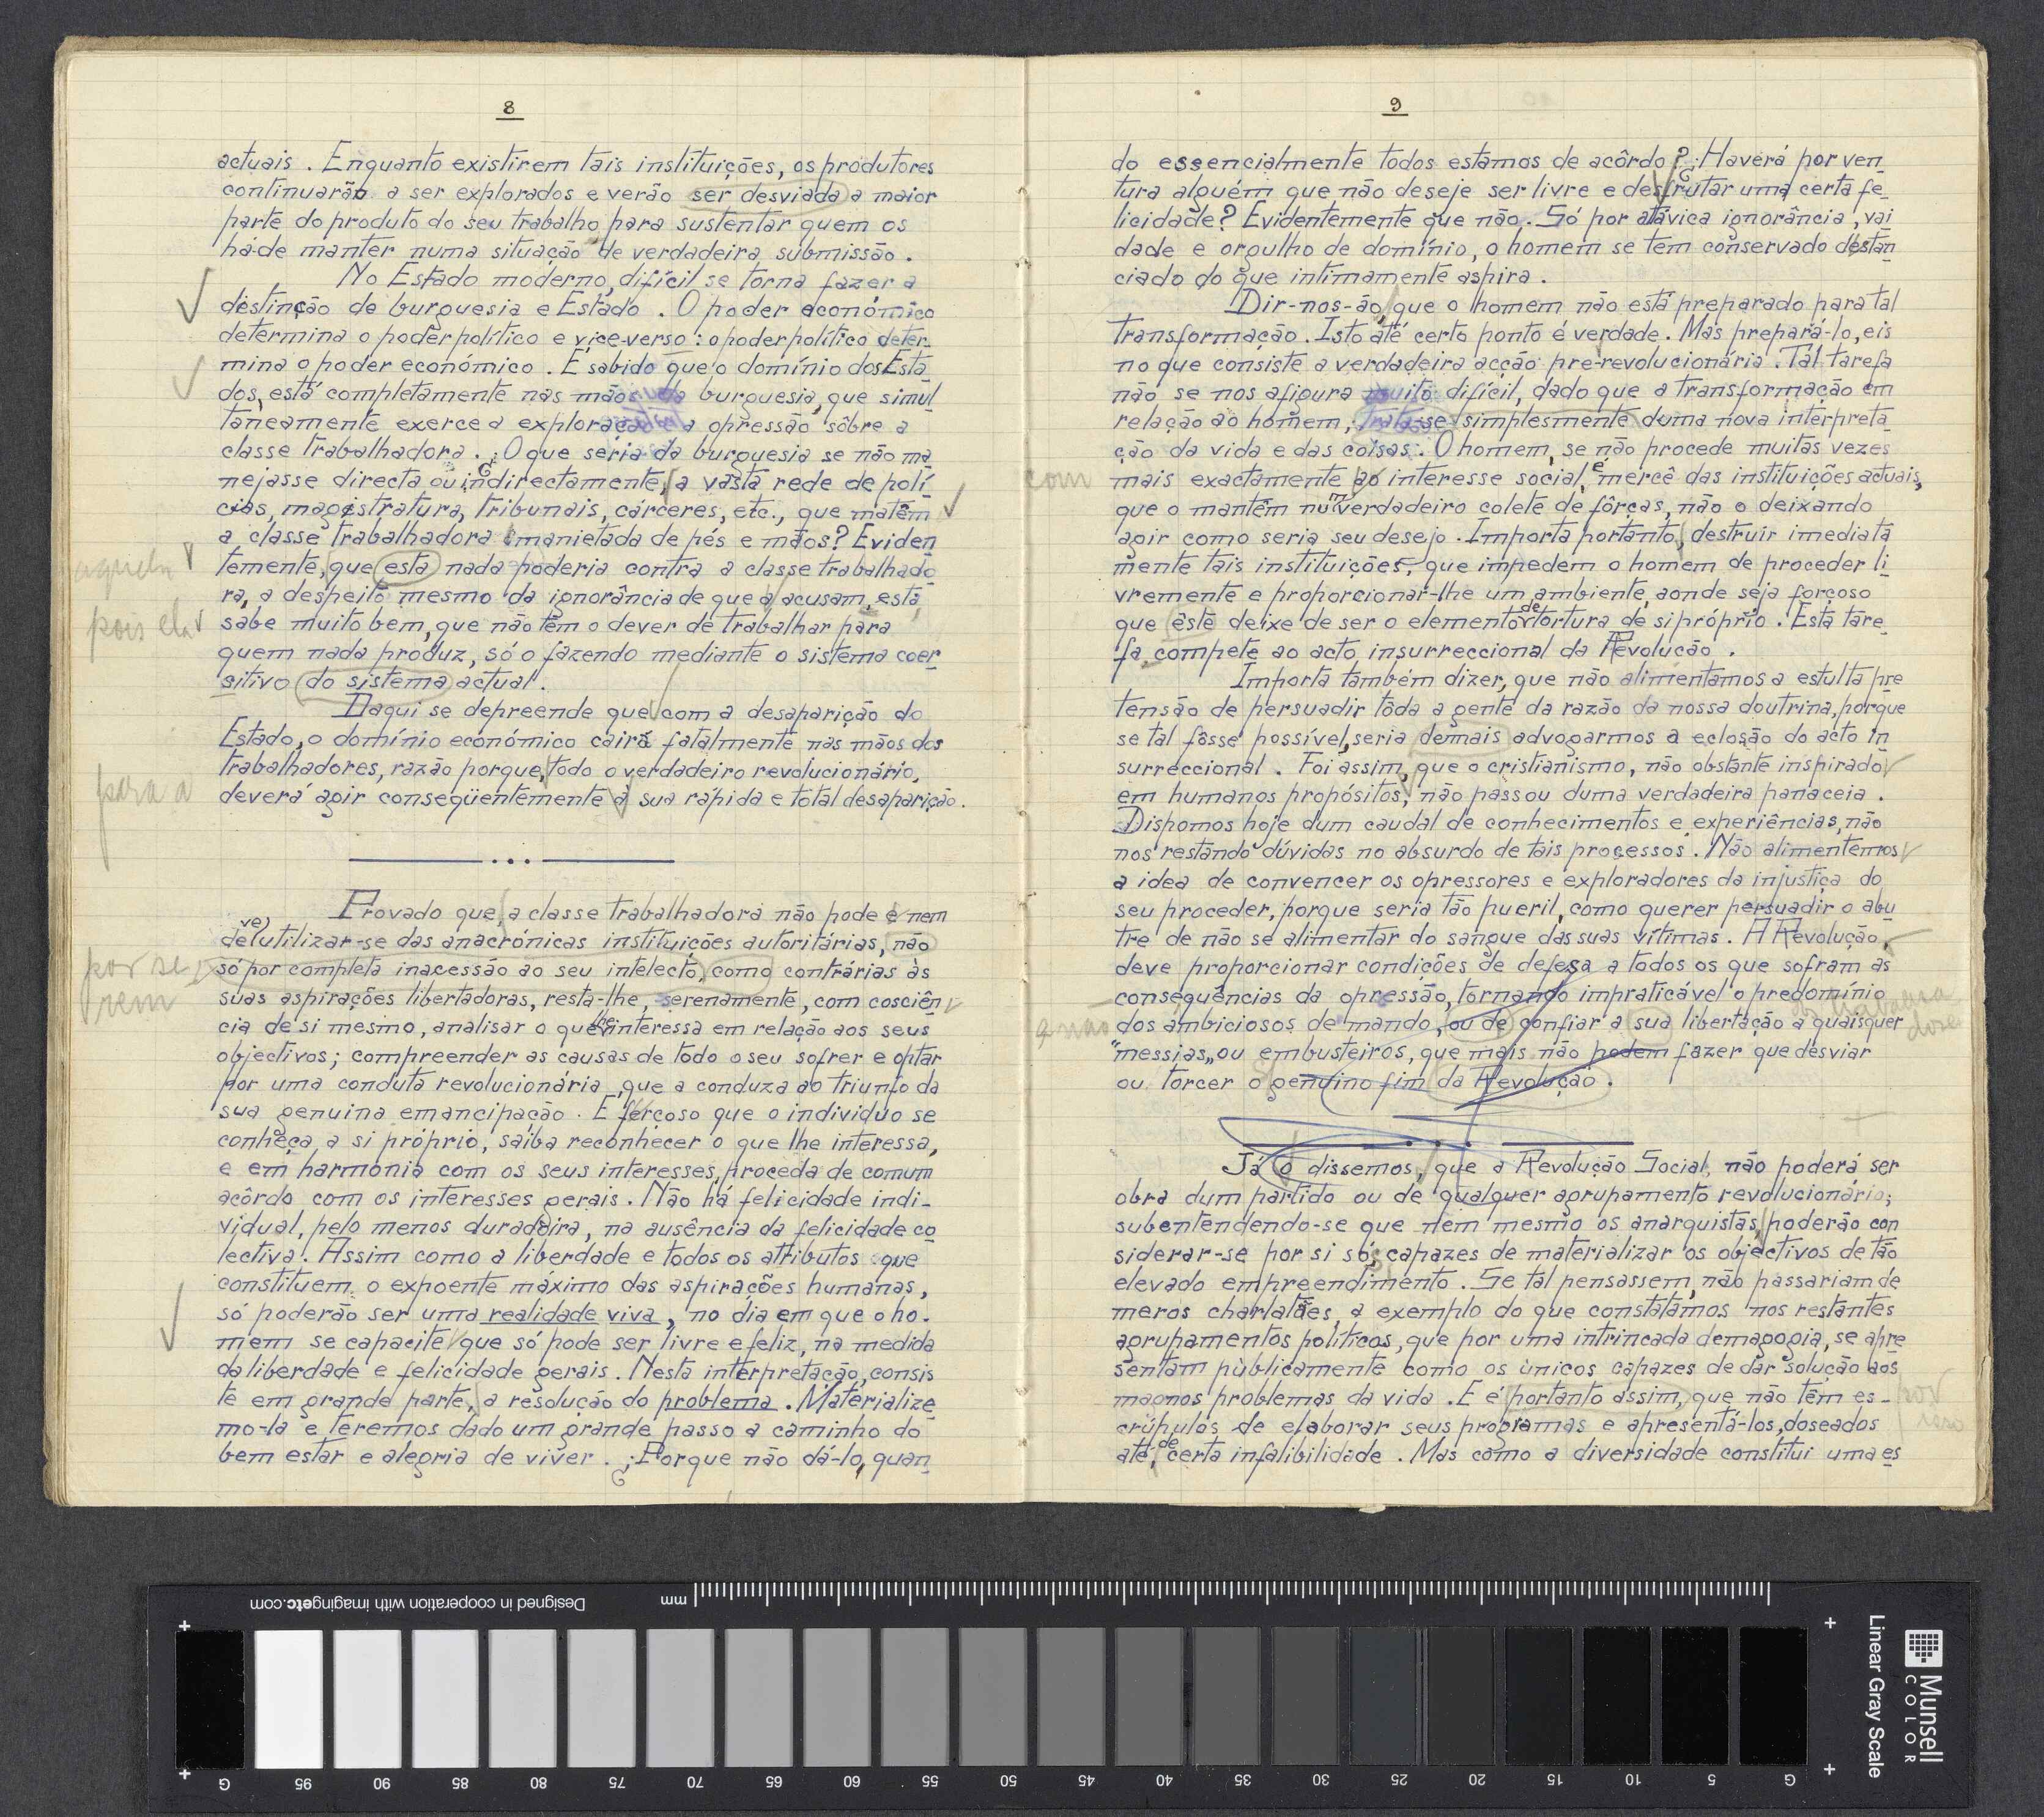 8
actuais. Enquanto existirem tais instituições, os produtores
continuarão a ser explorados e verão ser desviada a maior
parte do produto do seu trabalho para sustentar quem os
há-de manter numa situação de verdadeira submissão.
No Estado moderno, difícil se torna fazer a
destinção de burguesia e Estado. O poder económico
determina o poder político e vice-verso: o poder político deter-
mina o poder económico. É sabido que o domínio dos Esta
dos, está completamente nas mãos da burguesia, que simul
tâneamente exerce a exploração e a opressão sôbre a
classe trabalhadora. ¿O que seria da burguesia se não ma
nejasse directa ou indirectamente, a vasta rede de polí
cias, magistratura, tribunais, cárceres, etc., que matêm
a classe trabalhadora manietada de pés e mãos? Eviden
temente, que esta nada poderia contra a classe trabalhado
aquela
ra, a despeito mesmo da ignorância de que a acusam, esta
pois ela
sabe muito bem, que não têm o dever de trabalhar para
quem nada produz, só o fazendo mediante o sistema coer
sitivo do sistema actual.
Daqui se depreende que com a desaparição do
Estado, o domínio económico cairá fatalmente nas mãos dos
trabalhadores, razão porque, todo o verdadeiro revolucionário,
para a
deverá agir conseqüentemente à sua rápida e total desaparição.
Provado que, a classe trabalhadora não pode e nem
deve utilizar-se das anacrónicas instituições autoritárias, não
por se
só por completa inacessão ao seu intelecto, como contrárias às
rem
suas aspirações libertadoras, resta-lhe, serenamente, com cosciên
cia de si mesmo, analisar o que lhe interessa em relação aos seus
objectivos; compreender as causas de todo o seu sofrer e optar
por uma conduta revolucionária, que a conduza ao triunfo da
sua genuina emancipação. É forçoso que o individuo se
conheça a si próprio, saiba reconhecer o que lhe interessa,
e em harmonia com os seus interesses, proceda de comum
acôrdo com os interesses gerais. Não há felicidade indi-
vidual, pelo menos duradoira, na ausência da felicidade co
lectiva. Assim como a liberdade e todos os attributos que
constituem o expoente máximo das aspirações humanas,
só poderão ser uma realidade viva, no dia em que o ho-
mem se capacite que só pode ser livre e feliz, na medida
da liberdade e felicidade gerais. Nesta interpretação, consis
te em grande parte, a resolução do problema. Materialize
mo-la e teremos dado um grande passo a caminho do
bem estar e alegria de viver. ¿Porque não dá-lo, quan
9
do essencialmente todos estamos de acôrdo? ¿Haverá por ven
tura alguém que não deseje ser livre e desfrutar uma certa fe
licidade? Evidentemente que não. Só por atávica ignorância, vai
dade e orgulho de domínio, o homem se tem conservado destan
ciado do que intimamente aspira.
Dir-nos-ão, que o homem não está preparado para tal
transformação. Isto até certo ponto é verdade. Mas prepará-lo, eis
no que consiste a verdadeira acção pre-revolucionária. Tal tarefa
não se nos afigura muito difícil, dado que a transformação em
relação ao homem, trata-se simplesmente duma nova interpreta
ção da vida e das coisas. O homem, se não procede muitas vezes
com
mais exactamente ao interesse social, é mercê das instituições actuais,
que o mantém num verdadeiro colete de fôrças, não o deixando
agir como seria seu desejo. Importa portanto, destruir imediata
mente tais instituições, que impedem o homem de proceder li
vremente e proporcionar-lhe um ambiente, aonde seja forçoso
que êste deixe de ser o elemento de tortura de si próprio. Esta tare
fa, compete ao acto insurreccional da Revolução.
Importa também dizer, que não alimentamos a estulta pre
tensão de persuadir tôda a gente da razão da nossa doutrina, porque
se tal fôsse possível, seria demais advogarmos a eclosão do acto in
surreccional. Foi assim, que o cristianismo, não obstante inspirado
em humanos propósitos, não passou duma verdadeira panaceia.
Dispomos hoje dum caudal de conhecimentos e experiências, não
nos restando dúvidas no absurdo de tais processos. Não alimentemos
a idea de convencer os opressores e exploradores da injustiça do
seu proceder, porque seria tão pueril, como querer persuadir o abu
tre de não se alimentar do sangue das suas vítimas. A Revolução,
deve proporcionar condições de defesa a todos os que sofram as
consequências da opressão, tornando impraticável o predomínio
dos ambiciosos de mando, ou de confiar a sua libertação a quaisquer
"messias" ou embusteiros, que mais não podem fazer que desviar
ou torcer o genuino fim da Revolução.
Já o dissemos, que a Revolução Social, não poderá ser
obra dum partido ou de qualquer agrupamento revolucionário;
subentendendo-se que nem mesmo os anarquistas, poderão con
siderar-se por si só, capazes de materializar os objectivos de tão
elevado empreendimento. Se tal pensassem, não passariam de
meros charlatães, a exemplo do que constatamos nos restantes
agrupamentos políticos, que por uma intrincada demagogia, se apre
sentam pùblicamente como os ùnicos capazes de dar solução aos
magnos problemas da vida. E é portanto assim, que não têm es-
por
isso
crúpulos de elaborar seus programas e apresentá-los, doseados
até, de certa infalibilidade. Mas como a diversidade constitui uma es
Designed in cooperation with imagingetc.com
mm
G 95 90 85 80 75 70 65 60 55 50 45 40 35 30 25 20 15 10 5 G
Munsell
COLOR
Linear Gray Scale